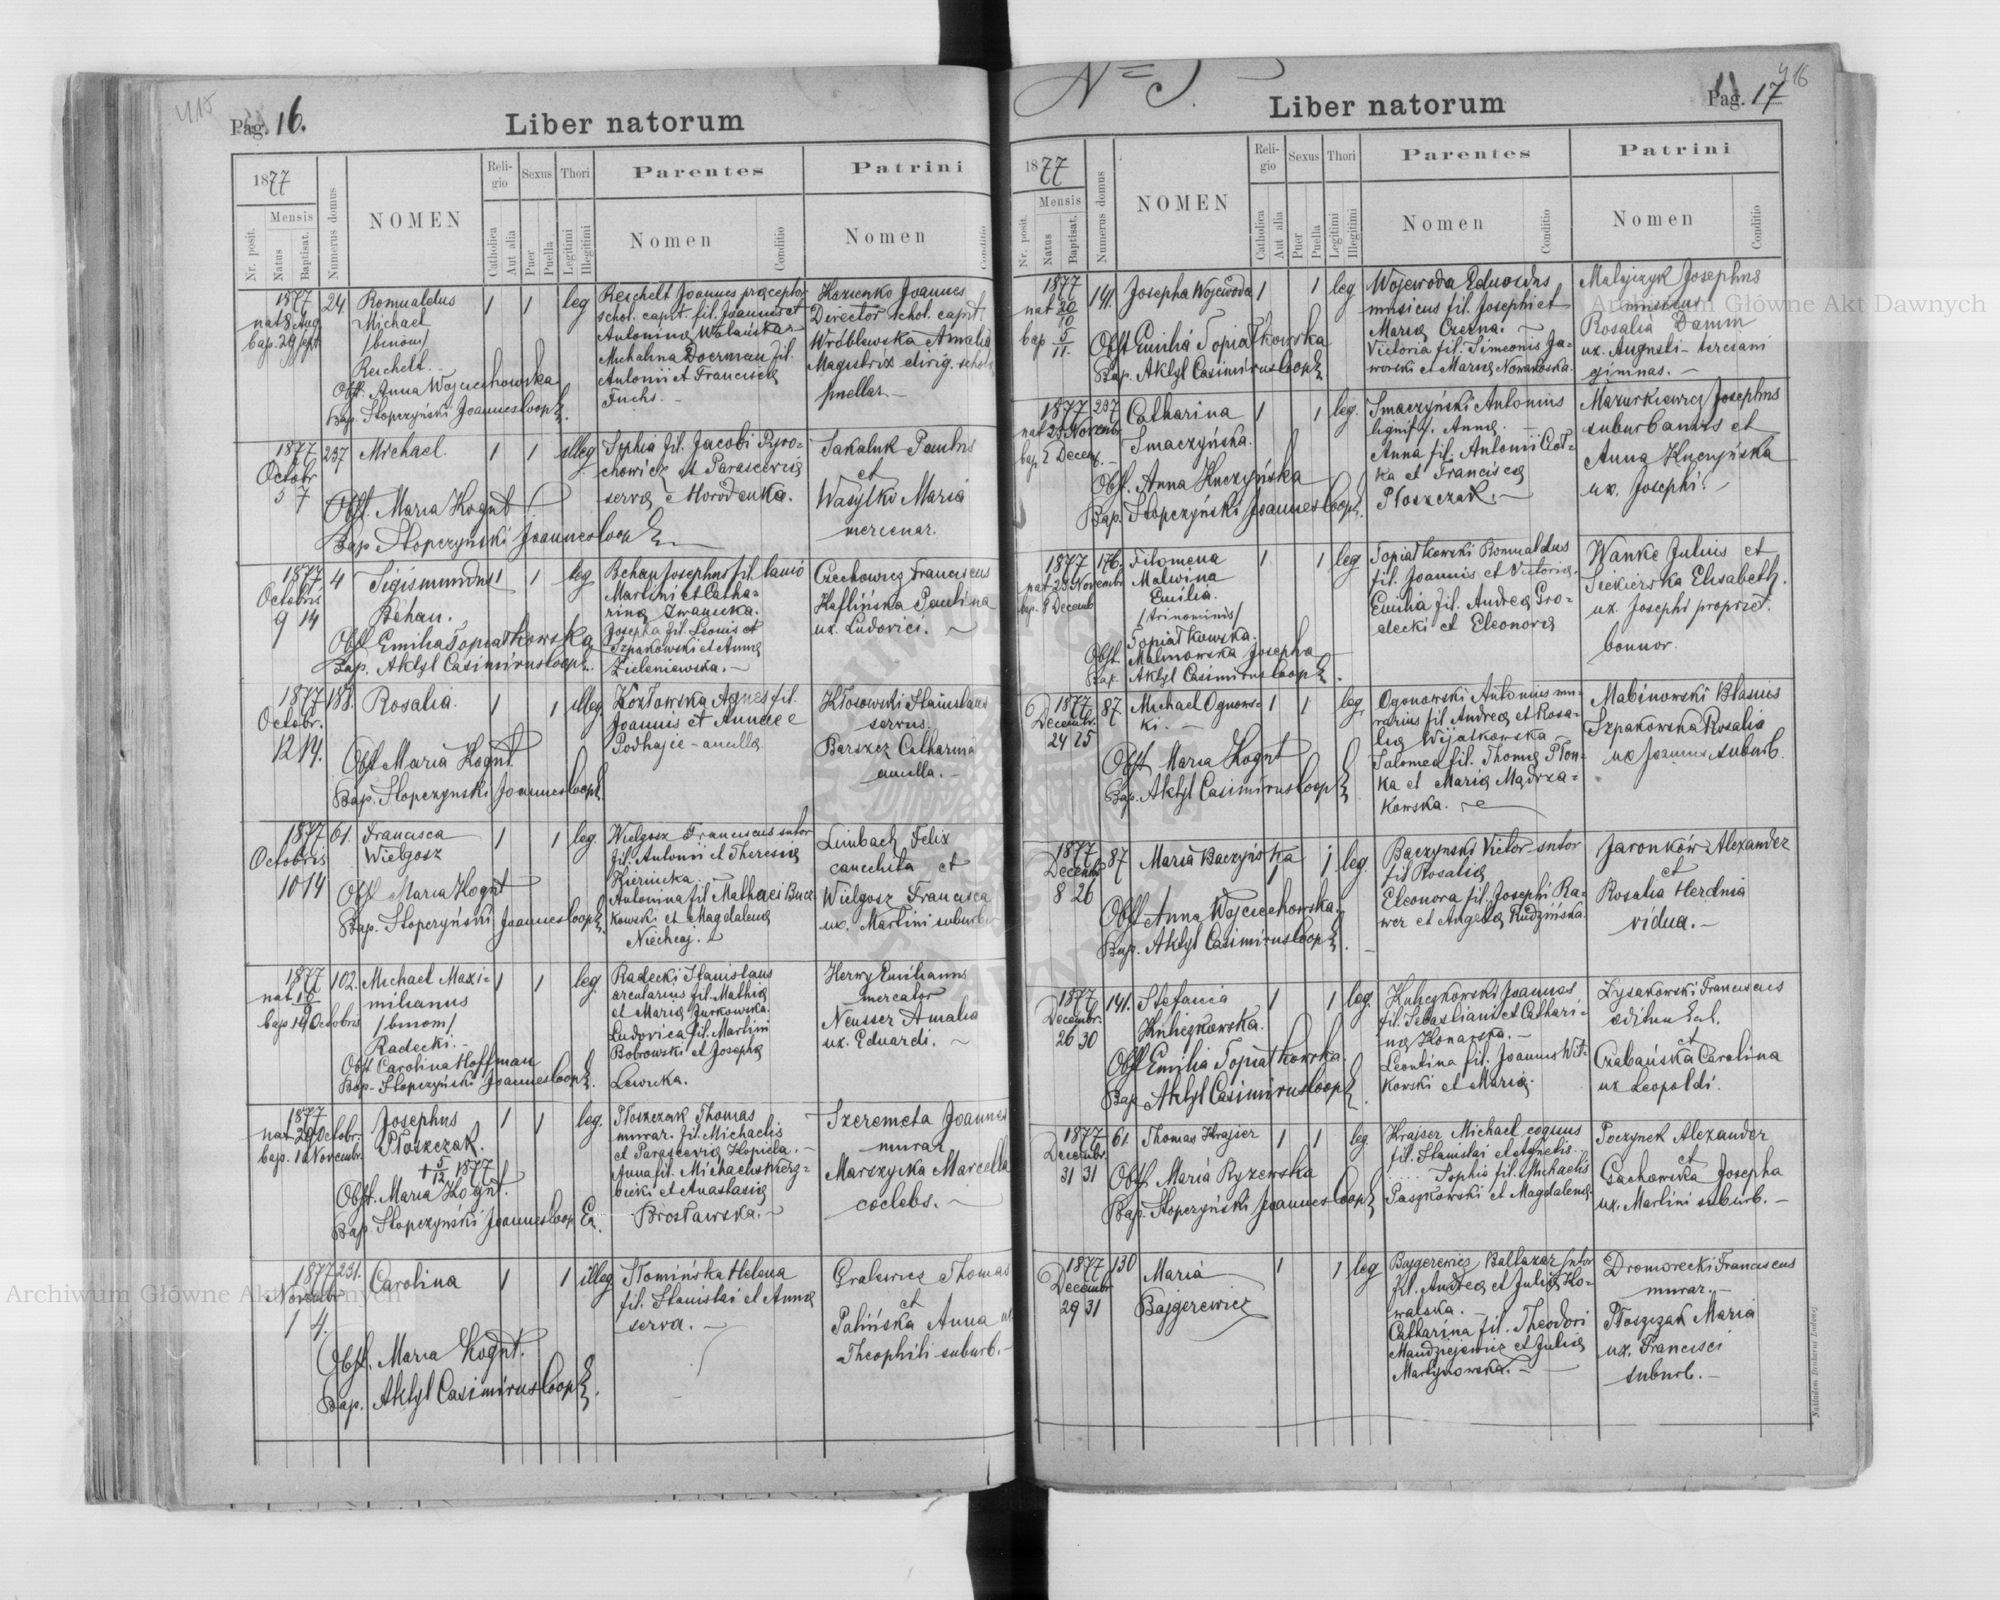 415
Pag. 16.
Liber natorum
1877
Nr. posit.
Mensis
Natus
Baptisat.
Numerus domus
NOMEN
Religio
Catholica
Aut alia
Sexus
Puer
Puella
Thori
Legitimi
Illegitimi
Parentes
Nomen
Conditio
Patrini
Nomen
Conditio
1877
nat 8 Aug
bap. 29 Sept
24
Romualdus
Michael
/binom/
Reichelt.
Obst. Anna Wojciechowska
Bap. Stopczyński Joannes Coop.
1
1
leg
Reichelt Joannes præceptor
schol. capit. fil. Joannis et
Antonina Wolańska
Michalina Doerman fil.
Antonii et Francisca
Fuchs. -
Kozienko Joannes
Director schol. capit.
Wróblewska Amalia
Magistrix dirig. schola
puellar. -
1877
Octobr
5 7
237
Michael.
Obst. Maria Kognt
Bap Stopczynski Joannes Coop
1
1
illeg
Sophia fil. Jacobi Pyro-
chowicz et Parascevia
serva e Horodenka.
Sakaluk Paulus
et
Wasylko Maria
mercenar.
1877
Octobris
9 14
4
Sigismundus
Behan.
Obst Emilia Topiatkowska
Bap. Aktyl Casimirus Coop.
1
1
leg
Behan Josephus fil. lanio
Martini et Catha-
rina Iwanicka.
Josepha fil. Leonis et
Szpakowski et Anna
Zieleniewska. -
Czechowicz Franciscus
Kaflińska Paulina
ux. Ludovici. ~
1877
Octobr.
12 14.
188.
Rosalia.
Obst Maria Kognt
Bap. Stopczynski Joannes Coop.
1
1
illeg
Kozłowska Agnes fil.
Joannis et Annae e
Podhajce - ancilla
Kłosowski Stanislaus
servus.
Barszcz Catharina
ancilla. -
1877
Octobris
10 14
61.
Francisca
Wielgosz
Obst Maria Kognt
Bap. Stopczyński Joannes Coop.
1
1
leg.
Wielgosz Franciscus sutor
fil. Antonii et Theresia
Kiernicka.
Antonina fil Mathaei Bucz
kowski et Magdalena
Niechcaj.
Limbach Felix
cancelista et
Wielgosz Francisca
ux. Martini suburb
1877
bap 14 Octobris
102.
Michael Maxi-
milianus
/binom/
Radecki. -
Obst Carolina Hoffman
Bap - Stopczyński Joannes Coop.
1
1
leg.
Radecki Stanislaus
arcularius fil. Mathia
et Maria Jurkowska.
Ludovica fil. Martini
Bobrowski et Josepha
Lewicka.
Herwy Emilianus
mercator
Neusser Amalia
ux. Eduardi. ~
1877
nat 29 Octobr.
bap. 1 Novembr.
Josephus
Płoszczak.
+ 5/12 1877
Obst. Maria Kognt.
Bap. Stopczyński Joannes Coop
1
1
leg.
Płoszczak Thomas
murar. fil. Michaelis
et Parascevia Kopiela. -
Anna fil. Michaelis Wierz-
bicki et Anastasia
Brosławska. ~
Szeremeta Joannes
murar
Marszycka Marcella
coelebs. ~
1877
Novembr
1 4.
231.
Carolina
Obst. Maria Kognt.
Bap. Aktyl Casimirus Coop.
1
1
illeg
Słomińska Helena
fil. Stanislai et Anna
serva. -
Gralewicz Thomas
et
Palińska Anna ux.
Theophili suburb. -
N= 5
416
Pag. 17
Liber natorum
1877
Nr. posit.
Mensis
Natus
Baptisat.
Numerus domus
NOMEN
Religio
Catholica
Aut alia
Sexus
Puer
Puella
Thori
Legitimi
Illegitimi
Parentes
Nomen
Conditio
Patrini
Nomen
Conditio
1877
nat 20/10
bap 5/11.
141.
Josepha Wojewoda
Obst Emilia Topiatkowska
Bap. Aktyl Casimirus Coop.
1
1
leg
Wojewoda Eduardus
musicus fil. Josephi et
Maria Czerna. -
Victoria fil. Simeonis Ja-
worski et Maria Nowakowska.
Matyjczyk Josephus
Rosalia Damm
ux. Augusti - terciani
gimnas. -
1877
nat 25 Novembr
bap 2 Decem.
237
Catharina
Smaczyńska.
Obst. Anna Kuczyńska
Bap. Stopczyński Joannes Coop.
1
1
leg.
Smaczyński Antonius
lignif. fil. Anna. -
Anna fil. Antonii Ciot-
ka et Francisca
Płoszczak. -
Mazurkiewicz Josephus
suburbanus et
Anna Kuczyńska
ux. Josephi. -
1877
nat 23 Novembr
bap. 8 Decemb
176.
Filomena
Malwina
Emilia.
/trinominis/
Topiatkowska.
Obst. Malinowska Josepha
Bap. Aktyl Casimirus Coop.
1
1
leg
Topiatkowski Romualdus
fil. Joannis et Victoria.
Emilia fil. Andrea Gro-
decki et Eleonora
Wanke Julius et
Siekierska Elisabeth.
ux. Josephi propriet.
bonnor.
1877
Decembr.
24 25
87
Michael Ogonows-
ki. -
Obst Maria Kognt
Bap. Aktyl Casimirus Coop
1
1
leg.
Ogonowski Antonius mu-
rarius fil Andrea et Rosa-
lia Wijatkowska
Salomea fil. Thoma Płon-
ka et Maria Mądrza-
kowska.
Malinowski Blasius
Szpakowska Rosalia
ux Joannis suburb.
1877
Decembr
8 26
87
Maria Baczyńska
Obst Anna Wojciechowska.
Bap. Aktyl Casimirus Coop.
1
1
leg.
Baczynski Victor - sutor
fil Rosalia
Eleonora fil. Josephi Ra-
wer et Angela Rudzińska.
Jaronków Alexander
et
Rosalia Herdnia
vidua. -
1877
Decembr.
26 30
141.
Stefania
Kulczkowska.
Obst Emilia Topiatkowska.
Bap Aktyl Casimirus Coop
1
1
leg.
Kulczkowski Joannes
fil. Sebastiani et Cathari-
na Konarska. -
Leontina fil. Joannis Wit-
kowski et Maria.
Łysakowski Franciscus
aedituus Lat.
et
Czabańska Carolina
ux Leopoldi.
1877
Decembr.
31 31
61.
Thomas Krajser
Obst. Maria Ryzewska
Bap. Stopczyński Joannes Coop
1
1
leg
Krajser Michael coquus
fil. Stanislai et Agnetis.
Sophia fil. Michaelis
Paszkowski et Magdalena.
Poczynek Alexander
et
Gachowska Josepha
ux. Martini suburb. -
1877
Decembr
29 31
130
Maria
Bajgerewicz
1
1
leg
Bajgerewicz Baltazar sutor
fil. Andrea et Julia Ko-
walska. -
Catharina fil. Theodori
Mandziejewicz et Julia
Martynowska. -
Dromorecki Franciscus
murar. -
Płoszczak Maria
ux. Francisci
suburb. -
Nakładem Drukarni Ludowej
Archiwum Główne Akt Dawnych
Archiwum Główne Akt Dawnych